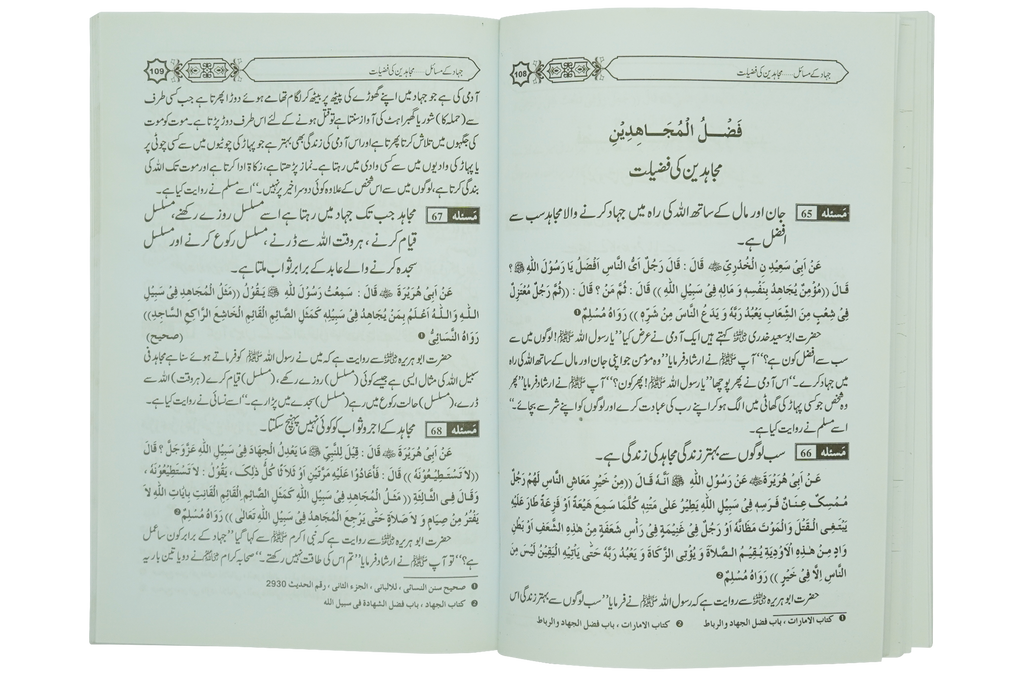 108
جہاد کے مسائل ۔۔۔ مجاہدین کی فضیلت
فَضْلُ الْمُجَاهِدِيْنِ
مجاہدین کی فضیلت
مَسئلہ 65 جان اور مال کے ساتھ اللہ کی راہ میں جہاد کرنے والا مجاہد سب سے
افضل ہے۔
عَنْ اَبِیْ سَعِیْدِ نِ الْخُدْرِیِّ ﷜ قَالَ : قَالَ رَجُلٌ اَیُّ النَّاسِ اَفْضَلُ یَا رَسُوْلَ اللّٰهِ ﷺ ؟
قَالَ ((مُؤْمِنٌ یُجَاهِدُ بِنَفْسِهٖ وَ مَالِهٖ فِیْ سَبِیْلِ اللّٰهِ )) قَالَ : ثُمَّ مَنْ ؟ قَالَ : ((ثُمَّ رَجُلٌ مُعْتَزِلٌ
فِیْ شِعْبٍ مِنَ الشِّعَابِ یَعْبُدُ رَبَّهٗ وَ یَدَعُ النَّاسَ مِنْ شَرِّهٖ )) رَوَاهُ مُسْلِمٌ❶
حضرت ابوسعید خدری ﷜ کہتے ہیں ایک آدمی نے عرض کیا ’’یا رسول اللہ ﷺ! لوگوں میں سے
سب سے افضل کون ہے؟‘‘ آپ ﷺ نے ارشاد فرمایا ’’وہ مؤمن جو اپنی جان اور مال کے ساتھ اللہ کی راہ
میں جہاد کرے۔‘‘ اس آدمی نے پھر پوچھا ’’یا رسول اللہ ﷺ! پھر کون؟‘‘ آپ ﷺ نے ارشاد فرمایا ’’پھر
وہ شخص جو کسی پہاڑ کی گھاٹی میں الگ ہو کر اپنے رب کی عبادت کرے اور لوگوں کو اپنے شر سے بچائے۔‘‘
اسے مسلم نے روایت کیا ہے۔
مَسئلہ 66 سب لوگوں سے بہتر زندگی مجاہد کی زندگی ہے۔
عَنْ اَبِیْ هُرَیْرَةَ ﷜ عَنْ رَسُوْلِ اللّٰهِ ﷺ اَنَّهٗ قَالَ ((مِنْ خَیْرِ مَعَاشِ النَّاسِ لَهُمْ رَجُلٌ
مُمْسِکٌ عِنَانَ فَرَسِهٖ فِیْ سَبِیْلِ اللّٰهِ یَطِیْرُ عَلٰی مَتْنِهٖ کُلَّمَا سَمِعَ هَیْعَةً اَوْ فَزْعَةً طَارَ عَلَیْهِ
یَبْتَغِی الْقَتْلَ وَالْمَوْتَ مَظَانَّهٗ اَوْ رَجُلٌ فِیْ غُنَیْمَةٍ فِیْ رَأْسِ شَعَفَةٍ مِنْ هٰذِهِ الشَّعَفِ اَوْ بَطْنِ
وَادٍ مِنْ هٰذِهِ الْاَوْدِیَةِ یُقِیْمُ الصَّلَاةَ وَ یُؤْتِی الزَّکَاةَ وَ یَعْبُدُ رَبَّهٗ حَتّٰی یَأْتِیَهُ الْیَقِیْنُ لَیْسَ مِنَ
النَّاسِ اِلَّا فِیْ خَیْرٍ )) رَوَاهُ مُسْلِمٌ❷
حضرت ابوہریرہ ﷜ سے روایت ہے کہ رسول اللہ ﷺ نے فرمایا ’’سب لوگوں سے بہتر زندگی اس
❶ کتاب الامارات ، باب فضل الجهاد والرباط ❷ کتاب الامارات ، باب فضل الجهاد والرباط
109
جہاد کے مسائل ۔۔۔ مجاہدین کی فضیلت
آدمی کی ہے جو جہاد میں اپنے گھوڑے کی پیٹھ پر بیٹھ کر لگام تھامے ہوئے دوڑا پھرتا ہے جب کسی طرف
سے (حملہ کا) شور یا گھبراہٹ کی آواز سنتا ہے تو قتل ہونے کے لئے اس طرف دوڑ پڑتا ہے۔ موت کو موت
کی جگہوں میں تلاش کرتا پھرتا ہے اور اس آدمی کی زندگی بھی بہتر ہے جو پہاڑ کی چوٹیوں میں سے کسی چوٹی پر
یا پہاڑ کی وادیوں میں سے کسی وادی میں رہتا ہے۔ نماز پڑھتا ہے، زکاۃ ادا کرتا ہے اور موت تک اللہ کی
بندگی کرتا ہے، لوگوں میں سے اس شخص کے علاوہ کوئی دوسرا خیر پر نہیں۔‘‘ اسے مسلم نے روایت کیا ہے۔
مَسئلہ 67 مجاہد جب تک جہاد میں رہتا ہے اسے مسلسل روزے رکھنے، مسلسل
قیام کرنے ، ہر وقت اللہ سے ڈرنے ، مسلسل رکوع کرنے اور مسلسل
سجدہ کرنے والے عابد کے برابر ثواب ملتا ہے۔
عَنْ اَبِیْ هُرَیْرَةَ ﷜ قَالَ : سَمِعْتُ رَسُوْلَ اللّٰهِ ﷺ یَقُوْلُ ((مَثَلُ الْمُجَاهِدِ فِیْ سَبِیْلِ
اللّٰهِ وَاللّٰهُ اَعْلَمُ بِمَنْ یُجَاهِدُ فِیْ سَبِیْلِهٖ کَمَثَلِ الصَّائِمِ الْقَائِمِ الْخَاشِعِ الرَّاکِعِ السَّاجِدِ))
رَوَاهُ النَّسَائِیُّ❶ (صحیح)
حضرت ابوہریرہ ﷜ سے روایت ہے کہ میں نے رسول اللہ ﷺ کو فرماتے ہوئے سنا ہے مجاہد فی
سبیل اللہ کی مثال ایسی ہے جیسے کوئی (مسلسل) روزے رکھے، (مسلسل) قیام کرے (ہر وقت) اللہ سے
ڈرے، (مسلسل) حالت رکوع میں رہے (مسلسل) سجدے میں پڑا رہے۔‘‘ اسے نسائی نے روایت کیا ہے۔
مَسئلہ 68 مجاہد کے اجر و ثواب کو کوئی نہیں پہنچ سکتا۔
عَنْ اَبِیْ هُرَیْرَةَ ﷜ قَالَ : قِیْلَ لِلنَّبِیِّ ﷺ مَا یَعْدِلُ الْجِهَادَ فِیْ سَبِیْلِ اللّٰهِ عَزَّوَجَلَّ ؟ قَالَ
((لَا تَسْتَطِیْعُوْنَهٗ )) قَالَ : فَاَعَادُوْا عَلَیْهِ مَرَّتَیْنِ اَوْ ثَلَاثًا کُلُّ ذٰلِکَ ، یَقُوْلُ : لَا تَسْتَطِیْعُوْنَهٗ ،
وَقَالَ فِی الثَّالِثَةِ ((مَثَلُ الْمُجَاهِدِ فِیْ سَبِیْلِ اللّٰهِ کَمَثَلِ الصَّائِمِ الْقَائِمِ الْقَانِتِ بِاٰیَاتِ اللّٰهِ لَا
یَفْتُرُ مِنْ صِیَامٍ وَ لَا صَلَاةٍ حَتّٰی یَرْجِعَ الْمُجَاهِدُ فِیْ سَبِیْلِ اللّٰهِ تَعَالٰی )) رَوَاهُ مُسْلِمٌ❷
حضرت ابوہریرہ ﷜ سے روایت ہے کہ نبی اکرم ﷺ سے کہا گیا ’’جہاد کے برابر کون سا عمل
ہے؟‘‘ تو آپ ﷺ نے ارشاد فرمایا ’’تم اس کی طاقت نہیں رکھتے۔‘‘ صحابہ کرام ﷢ نے دو یا تین بار یہ
❶ صحیح سنن النسائی ، للالبانی ، الجزء الثانی ، رقم الحدیث 2930
❷ کتاب الجهاد ، باب فضل الشهادة فی سبیل الله